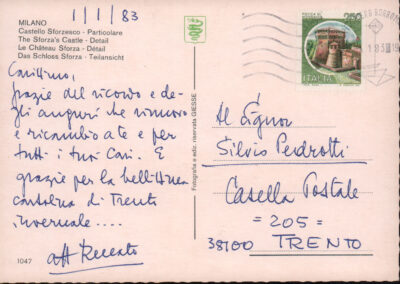 1/1/83
MILANO
Castello Sforzesco - Particolare
The Sforza's Castle - Detail
Le Château Sforza - Détail
Das Schloss Sforza - Teilansicht
Carissimo,
grazie del ricordo e de-
gli auguri che rinnovo
e ricambio a te e per
tutti i tuoi Cari. E
grazie per la bellissima
cartolina di Trento
invernale....
aff
1047
Fotografia e ediz. riservata GIESSE
250
ITALIA
Al Signor
Silvio Pedrotti
Casella Postale
= 205 =
38100 TRENTO